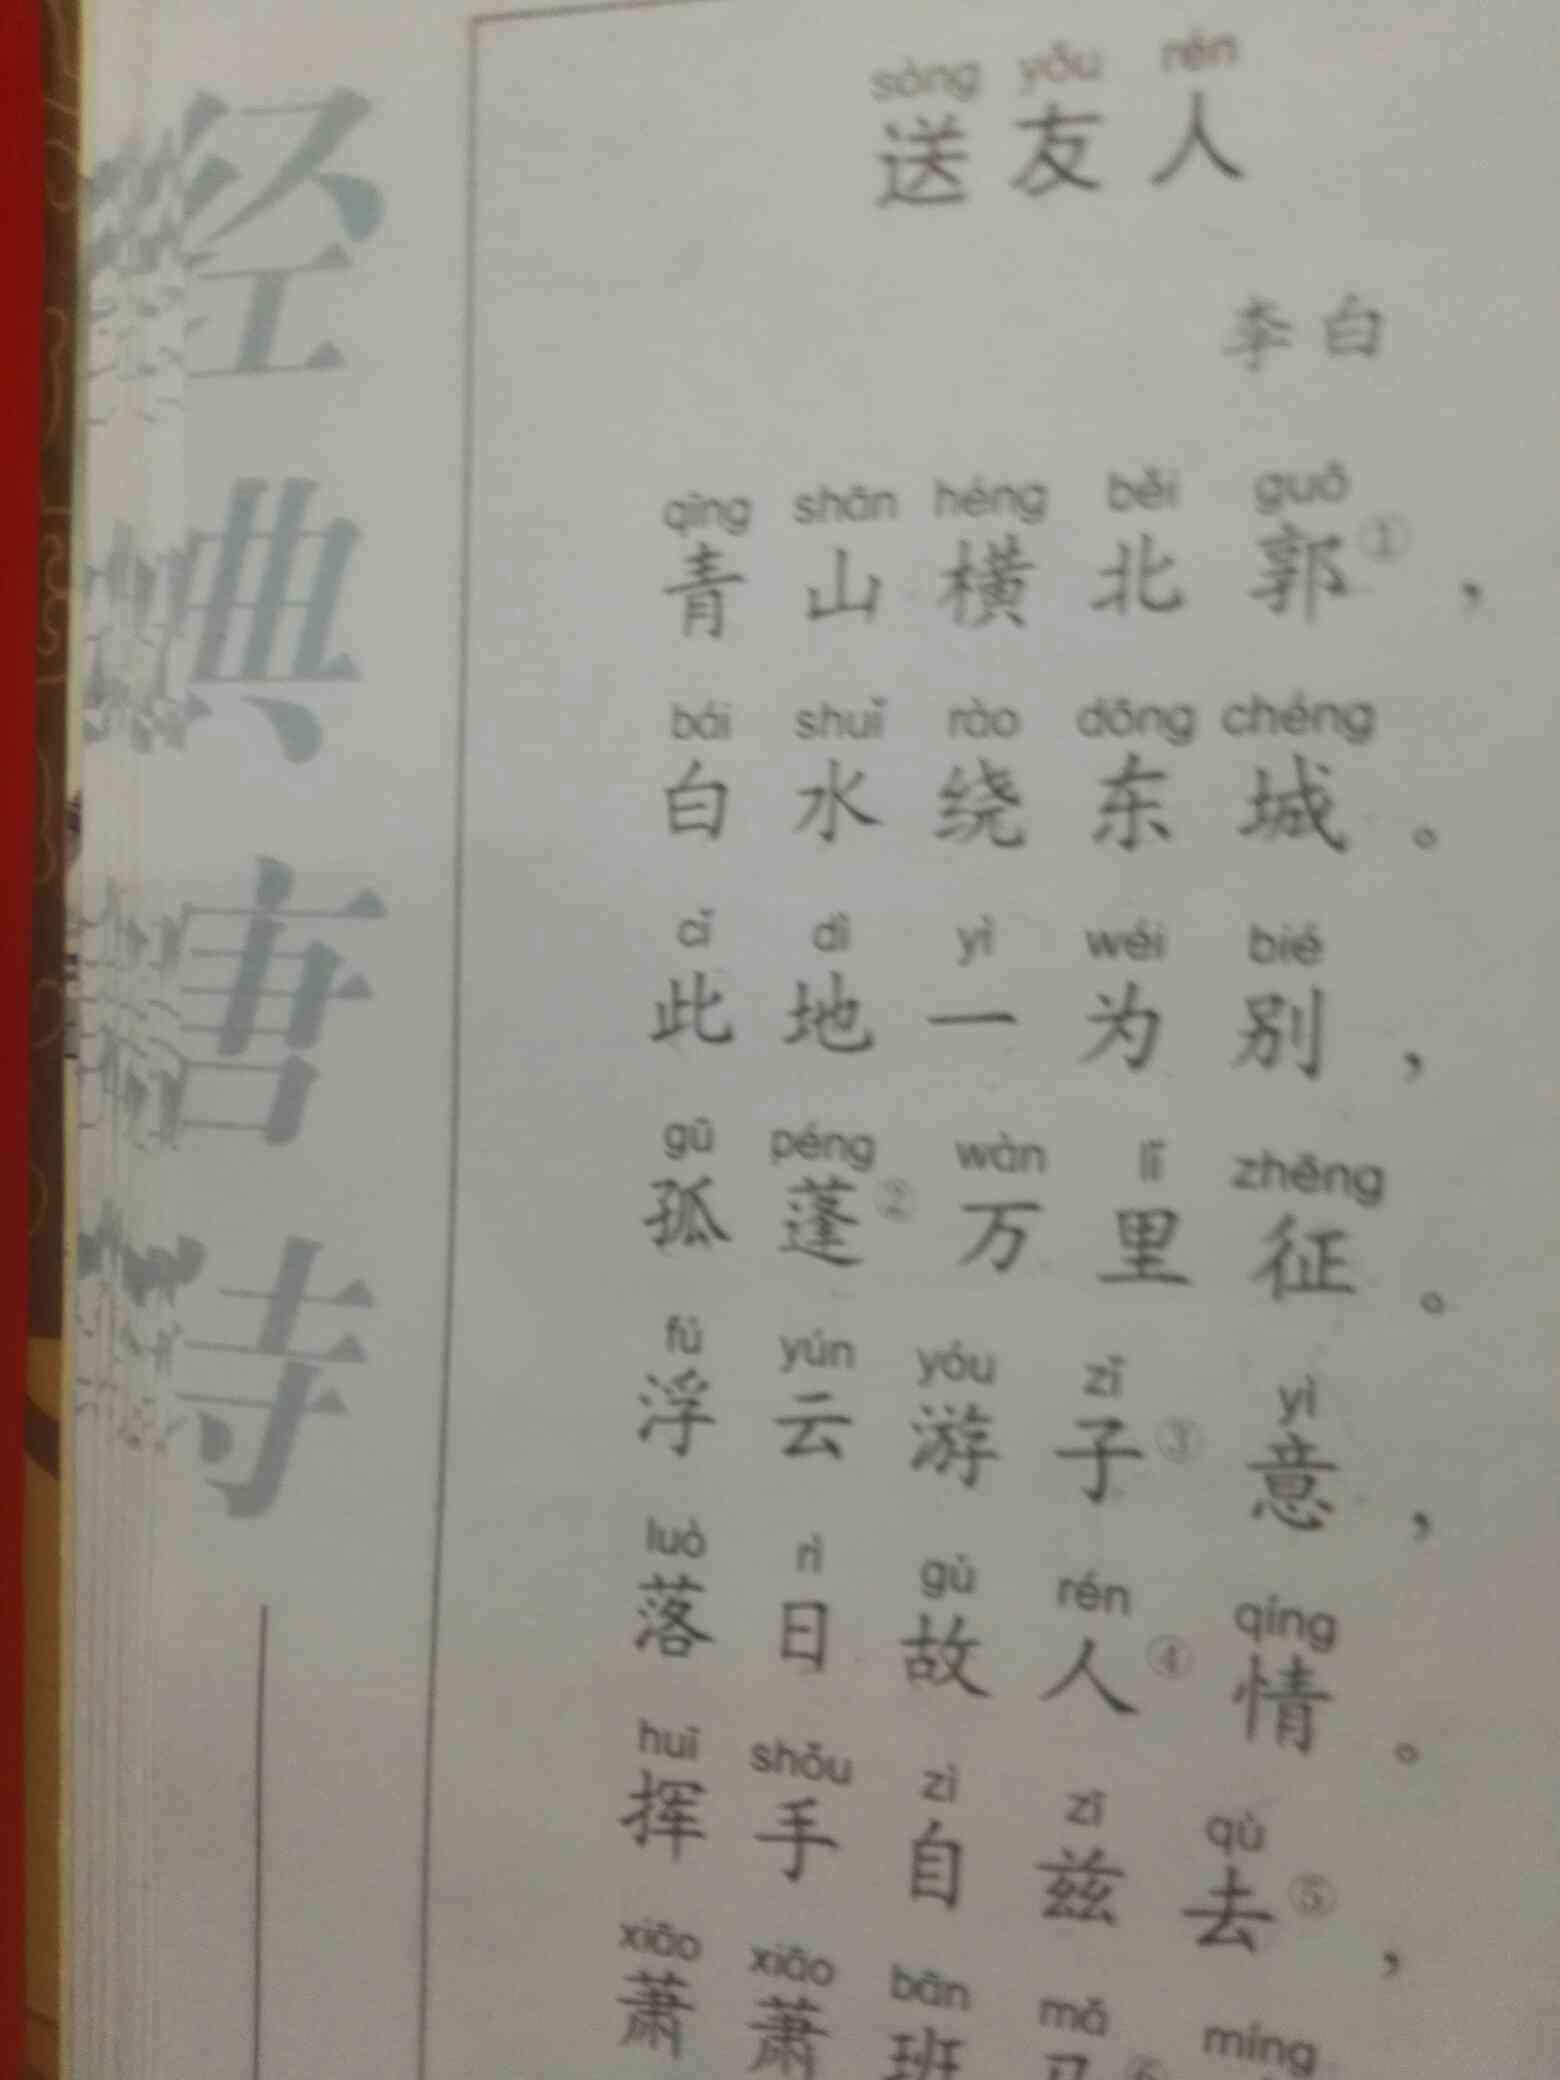 经典唐诗
sòng yǒu rén
送友人
李白
qīng shān héng běi guō
青山横北郭①，
bái shuǐ rào dōng chéng
白水绕东城。
cǐ dì yì wéi bié
此地一为别，
gū péng wàn lǐ zhēng
孤蓬②万里征。
fú yún yóu zǐ yì
浮云游子③意，
luò rì gù rén qíng
落日故人④情。
huī shǒu zì zī qù
挥手自兹去⑤，
xiāo xiāo bān mǎ míng
萧萧班马⑥